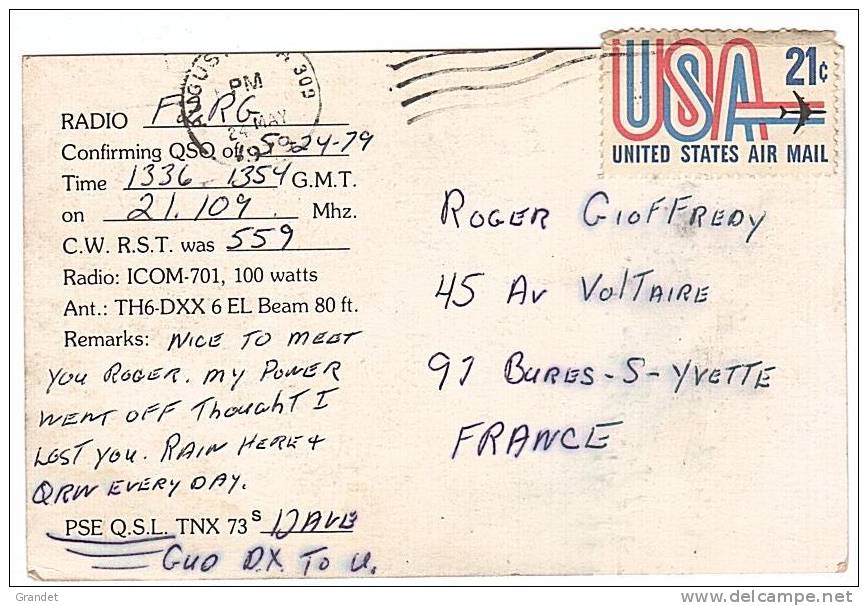 USA 21¢
UNITED STATES AIR MAIL
PM
24 MAY
RADIO F RG
Confirming QSO of 5-24-79
Time 1336 1354 G.M.T.
on 21.109 Mhz.
C.W. R.S.T. was 559
Radio: ICOM-701, 100 watts
Ant.: TH6-DXX 6 EL Beam 80 ft.
Remarks: NICE TO MEET
YOU ROGER. MY POWER
WENT OFF THOUGHT I
LOST YOU. RAIN HERE +
QRN EVERY DAY.
PSE Q.S.L. TNX 73s DAVE
GUD DX TO U.
ROGER GIOFFREDY
45 AV VOLTAIRE
91 BURES-S-YVETTE
FRANCE
delcampe.net
Grandet